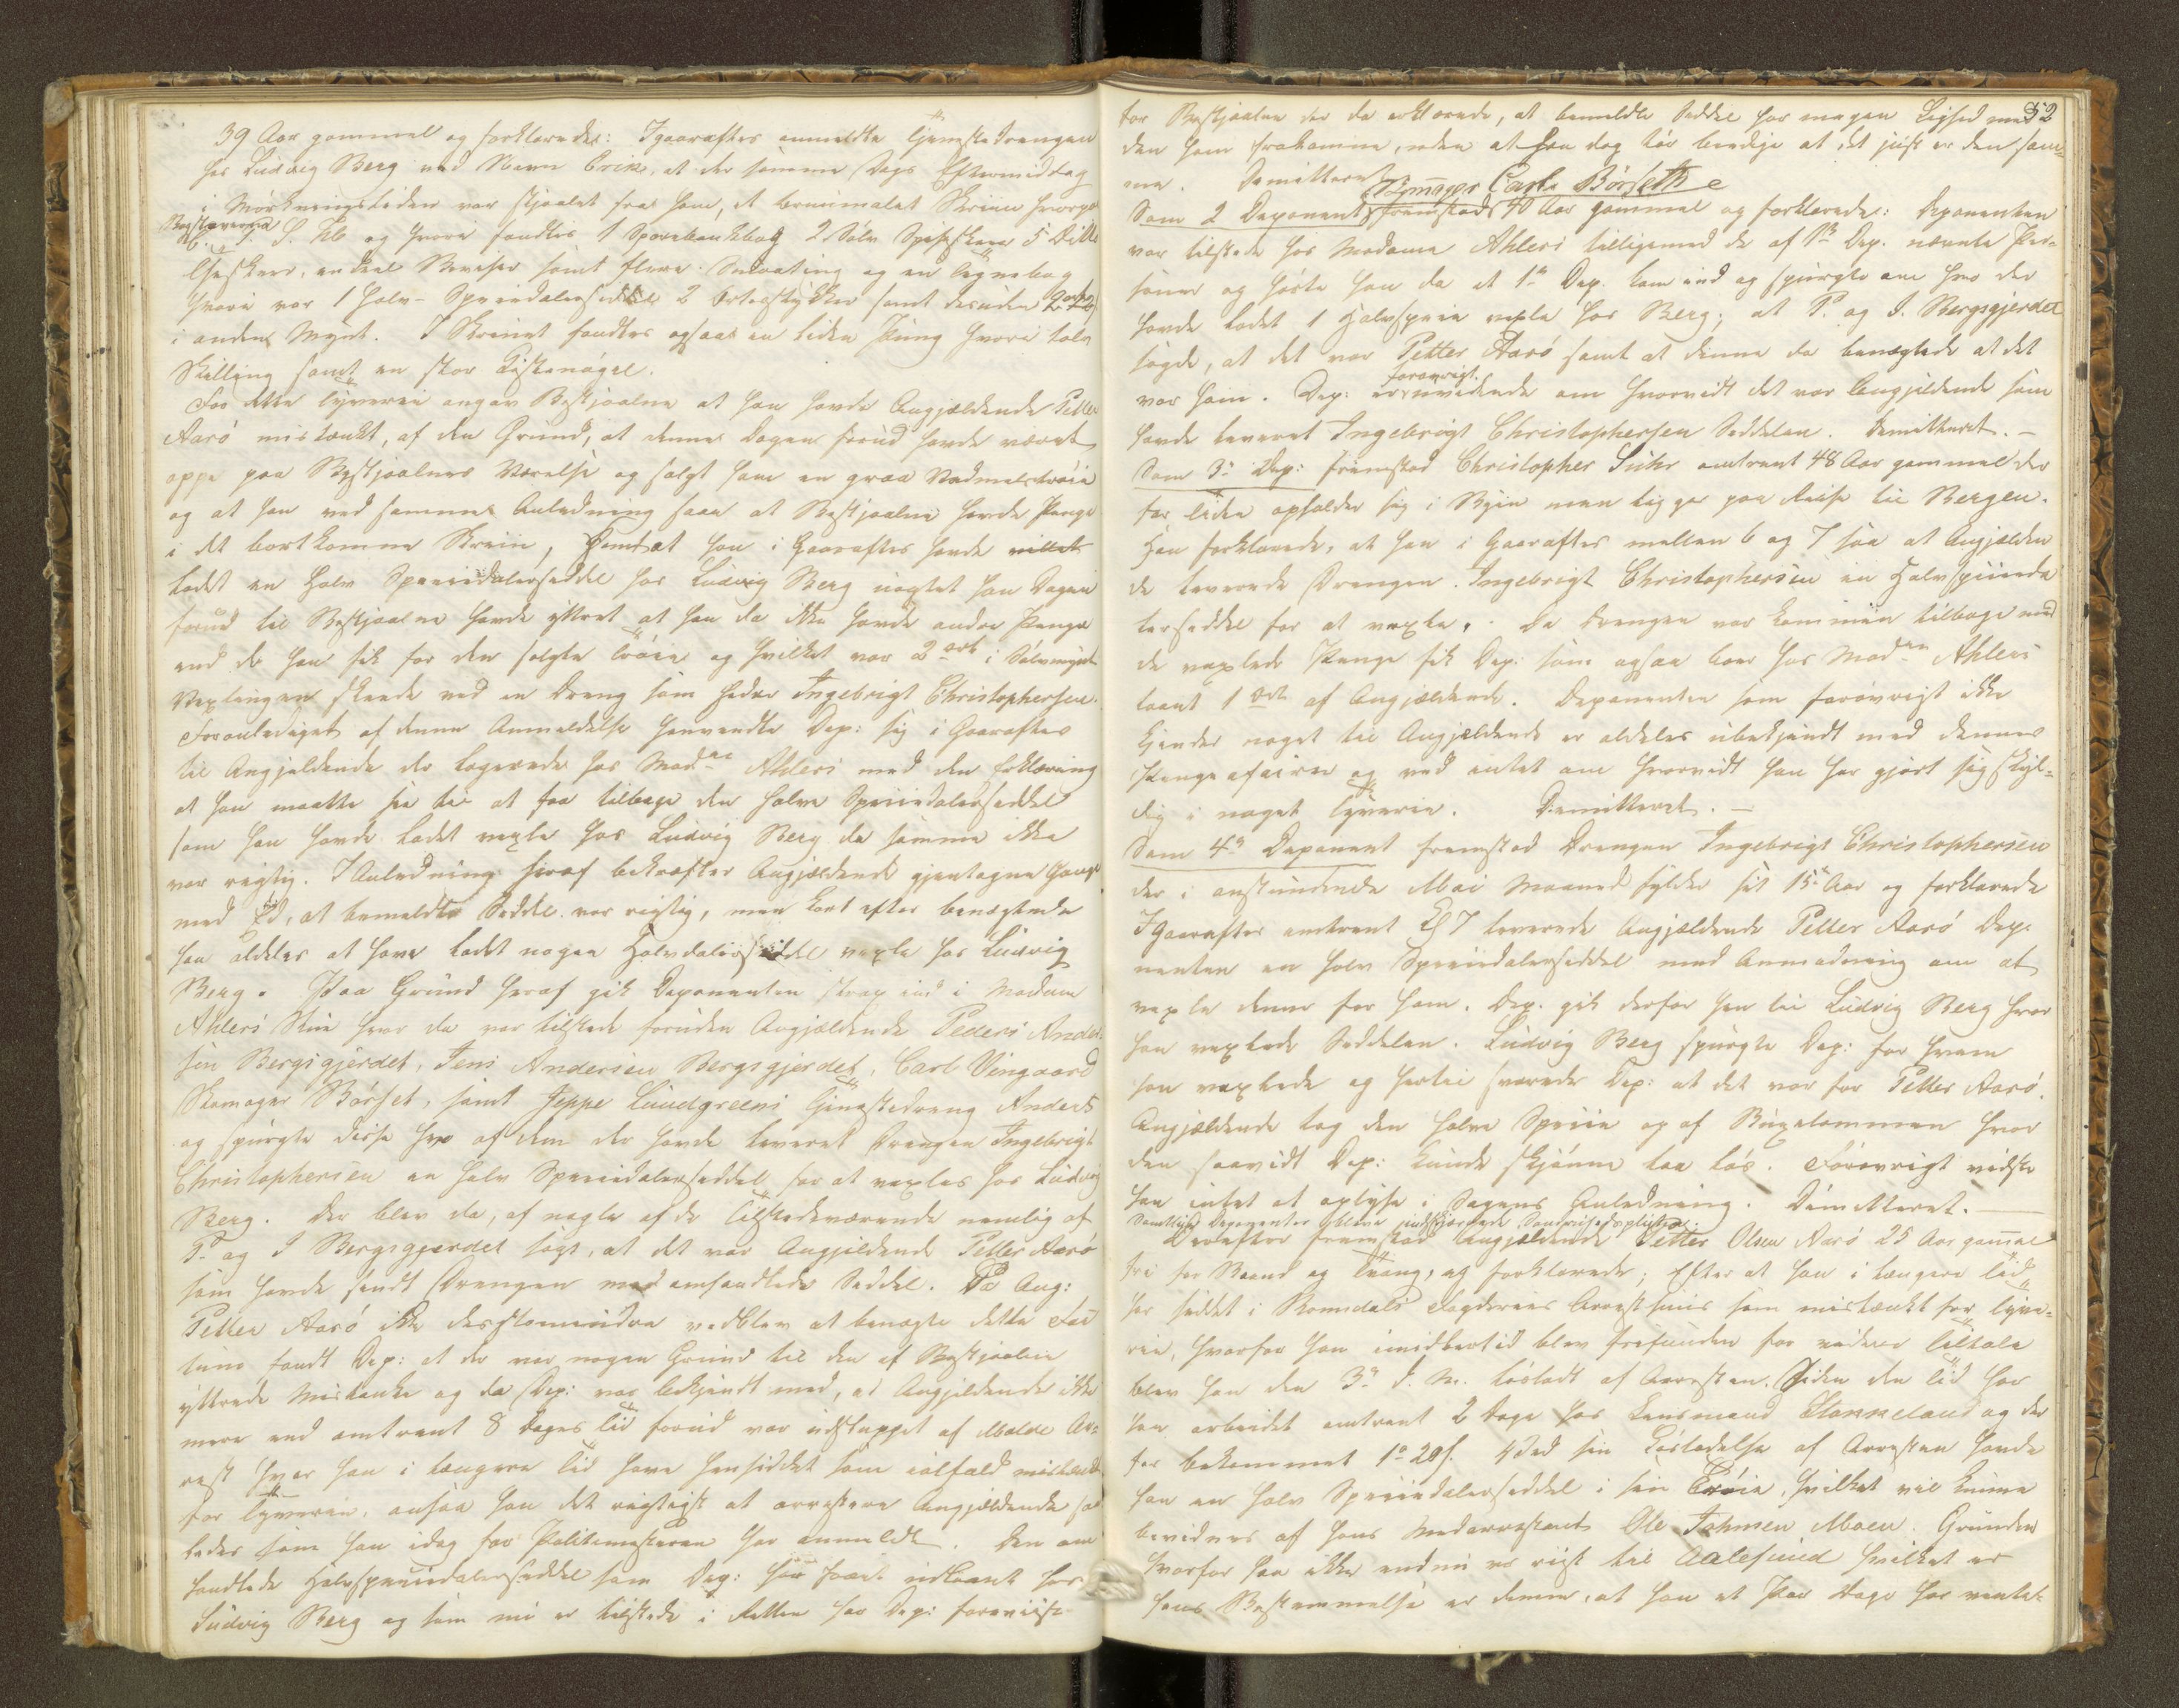 39 Aar gammel og forklarede: Igaaraftes anmeldte Tjenestedrengen
hos Ludvig Berg ved Navn Erik, at der samme Dags Eftermiddag
i Mørkningstiden var stjaalet fra ham, et bruunmalet Skriin hvorpaa
Bogstaverne
S. Kb og hvori fandtes 1 Sparebankbog 2 Sølv Spiseskeer 5 Ditto
Theskeer, endeel Breve samt flere og en Tegnebog
hvori var 1 Halv-Speciedalerseddel 2 Ortestykker samt desuden 2 ort
i anden Mynt. I Skriinet fandtes ogsaa en liden Pung hvori tolv
Skilling samt en stor Kistenøgel.
For dette Tyverie angav Bestjaalne at han havde Angjældende Petter
Aarö mistænkt, af den Grund, at denne Dagen forud havde været
oppe paa Bestjaalnes Værelse og solgt ham en graa Vadmelstrøie
og at han ved samme Anledning saae at Bestjaalne havde Penge
i det bortkomne Skriin, samt at han i Gaaraftes havde villet
ladet en Halv Speciedalerseddel hos Ludvig Berg uagtet han Dagen
forud til Bestjaalne havde yttret at han da ikke havde andre Penge
end de han fik for den solgte Trøie og hvilket var 2 ort i Sølvmynt
Vexlingen skeede ved en Dreng som heder Ingebrigt Christophersen.
Foranlediget af denne Anmeldelse henvendte Dep: sig i Gaaraftes
til Angjeldende der logerede hos Madme Ahlers med den Erklæring
at han maatte see til at faa tilbage den halve Speciedalerseddel
som han havde ladet vexle hos Ludvig Berg da samme ikke
var rigtig. I Anledning heraf bekræfter Angjældende gjentagne Gange
med Ed, at bemeldte Seddel var rigtig, men kort efter benægtede
han aldeles at have ladet nogen Halvdalerseddel vexle hos Ludvig
Berg. Paa Grund heraf gik Deponenten strax ind i Madame
Ahlers Stue hvor da var tilstede foruden Angjældende Peders Ander-
sen Bergsgjerdet, Jens Andersen Bergsgjerdet, Carl Vingaard
Skomager Börset, samt Jeppe Lundgreens Tjenestedreng Anders
og spurgte disse hvo af dem der havde leveret Drengen Ingebrigt
Christophersen en halv Speciedalerseddel for at vexles hos Ludvig
Berg. Der blev da, af nogle af de Tilstedeværende nemlig af
P. og J Bergsgjerdet sagt, at det var Angjeldende Petter Aarö
som havde sendt Drengen med omhandlede Seddel. Da Ang:
Petter Aarö ikke destomindre vedblev at benægte dette Fac-
tum fandt Dep: at der var nogen Grund til den af Bestjaalne
yttrede Mistanke og da Dep: var bekjendt med, at Angjeldende ikke
mere end omtrent 8 Dages Tid forud var udsluppet af Molde Ar-
rest hvor han i længere Tid have hensiddet som ialfald mistænkt
for Tyverie, ansaa han det rigtigst at arrestere Angjældende saa
ledes som han idag for Politimesteren har anmeldt. Den om
handlede Halvspeciedalerseddel som Dep: har faaet udlaant hos
Ludvig Berg og som nu er tilstede i Retten har Dep: foreviist
52
for Bestjaalne der da erklærede, at bemeldte Seddel har megen Lighed med
den ham frakomne, uden at han dog tør beedige at det just er den sam-
me. Demitteret
Skomager Carl Börseth
Som 2 Deponent fremstod 40 Aar gammel og forklarede: Deponenten
var tilstede hos Madame Ahlers tilligemed de af 1ste Dep. nævnte Per-
soner og hørte han da at 1ste Dep. kom ind og spurgte om hvo der
havde ladet 1 Halvspecie vexle hos Berg; at P. og J. Bergsgjerdet
sagde, at det var Petter Aarö samt at denne da benægtede at det
forøvrigt
var ham. Dep: er uvidende om hvorvidt det var Angjældende som
havde leveret Ingebrigt Christophersen Seddelen. Demitteret.-
Som 3die Dep: fremstod Christopher Suhr omtrent 48 Aar gammel der
for Tiden opholder sig i Byen men ligger paa Reise til Bergen.
Han forklarede, at han i Gaaraftes mellem 6 og 7 saa at Angjælden
de leverede Drengen Ingebrigt Christophersen en Halvspecieda
lerseddel for at vexle. Da Drengen var kommen tilbage med
de vexlede Penge fik Dep: som ogsaa boer hos Madmen Ahlers
laant 1 Ort af Angjældende. Deponenten som forøvrigt ikke
kjender noget til Angjeldende er aldeles ubekjendt med dennes
Pengeafairer og ved intet om hvorvidt han har gjort sig skyl-
dig i noget Tyverie. Demitteret.-
Som 4de Deponent fremstod Drengen Ingebrigt Christophersen
der i anstundende Mai Maaned fylder sit 15de Aar og forklarede
Igaaraftes omtrent Kl 7 leverede Angjældende Petter Aarö Depo-
nenten en halv Speciedalerseddel med Anmodning om at
vexle denne for ham. Dep. gik derfor hen til Ludvig Berg hvor
han vexlede Seddelen. Ludvig Berg spurgte Dep: for hvem
han vexlede og hertil svarede Dep: at det var for Petter Aarö.
Angjældende tog den halve Specie op af Buxelommen hvor
den saavidt Dep: kunde skjønne laa løs. Forøvrigt vidste
han intet at oplyse i Sagens Anledning. Demitteret.-
Samtlige Deponenter bleve indskjærpede Sandhedspligten.
Derefter fremstod Angjældende Petter Olsen Aarö 25 Aar gammel
fri for Baand og Tvang, og forklarede; Efter at han i længere Tid
har siddet i Romsdals Fogderies Arresthuus som mistænkt for Tyve-
rie, hvorfor han imidlertid blev frifunden for videre Tiltale
blev han den 3die d. M. løsladt af Arresten. Siden den Tid har
han arbeidet omtrent 2 Dage hos Lensmand Stokkeland og der
for bekommet 1 20s. Ved sin Løsladelse af Arresten havde
han en halv Speciedalerseddel i sin Trøie, hvilket vil kunne
bevidnes af hans Medarrestant Ole Johnsen Moen. Grunden
hvorfor han ikke endnu er reist til Aalesund hvilket er
hans Bestemmelse er denne, at han et Par Dage har vente-